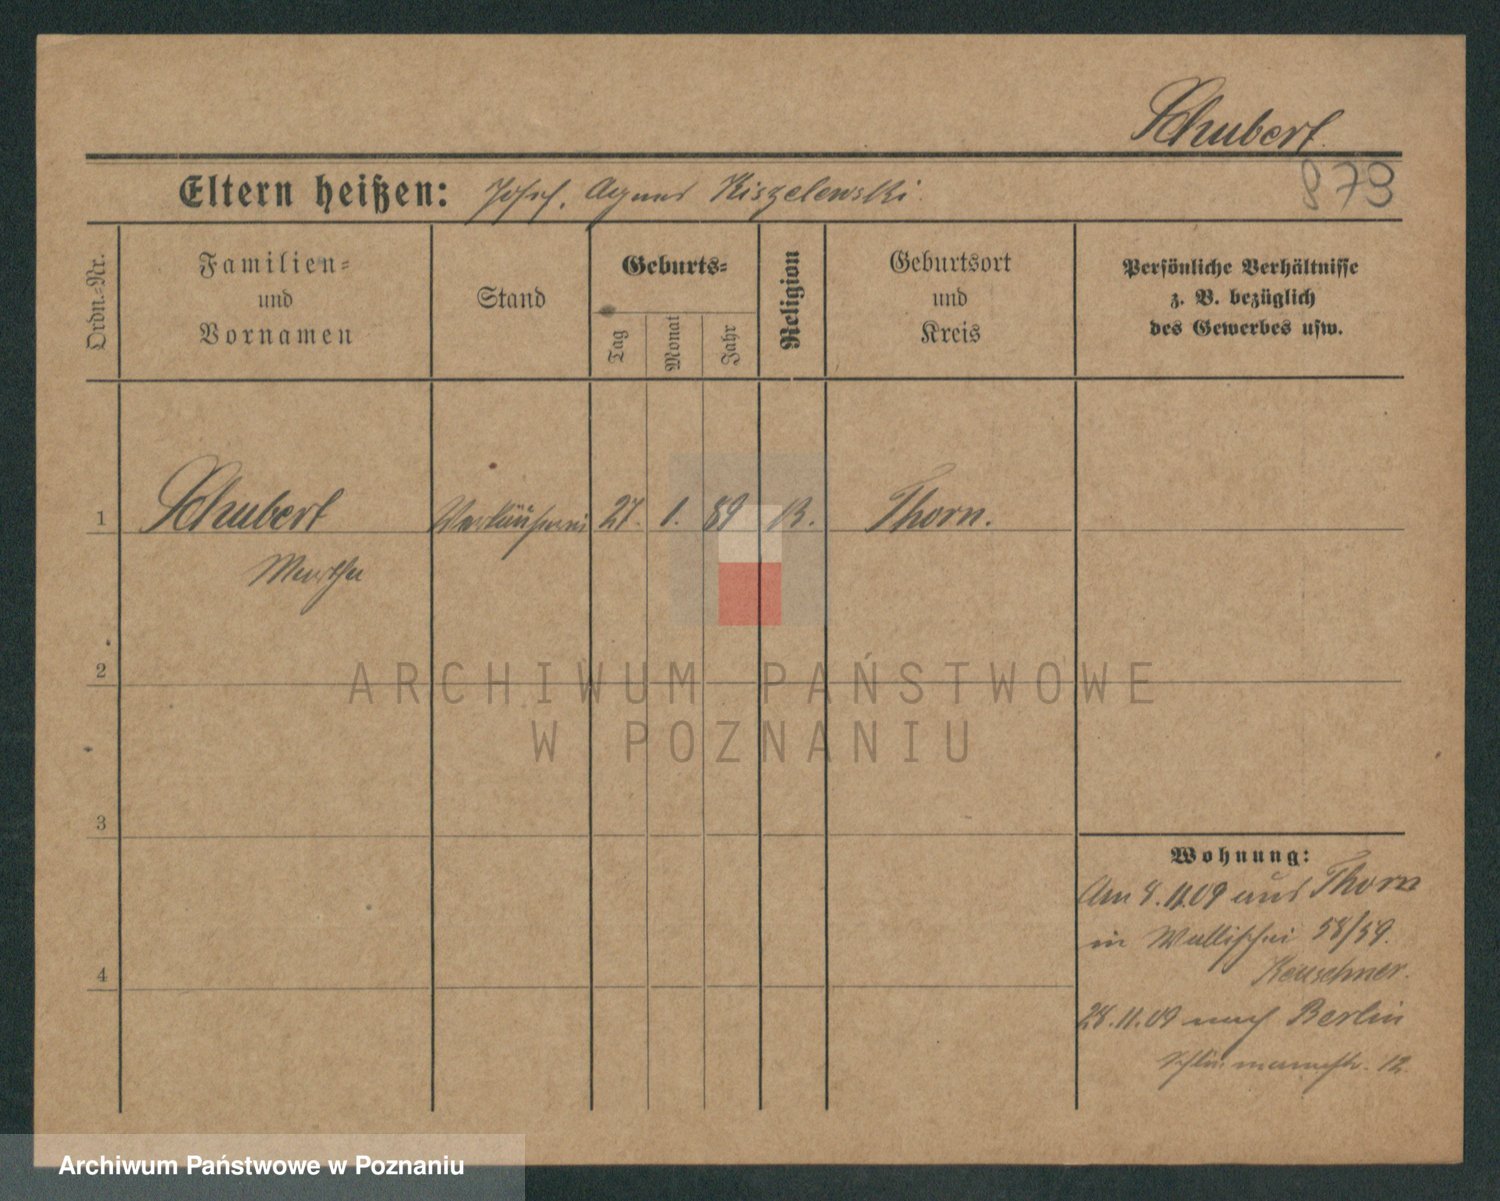 Schubert
Eltern heißen: Josef, Agnes Kiszelewski.
873
Ordn.-Nr.
Familien-
und
Vornamen
Stand
Geburts-
Tag
Monat
Jahr
Religion
Geburtsort
und
Kreis
Persönliche Verhältnisse
z. B. bezüglich
des Gewerbes usw.
1 Schubert Verkäuferin 27. 1. 89 Thorn.
Martha
2
3
4
Wohnung:
Am 8.11.09 aus Thorn
in Wallischei 58/59.
28.11.09 nach Berlin
12
ARCHIWUM PAŃSTWOWE
W POZNANIU
Archiwum Państwowe w Poznaniu